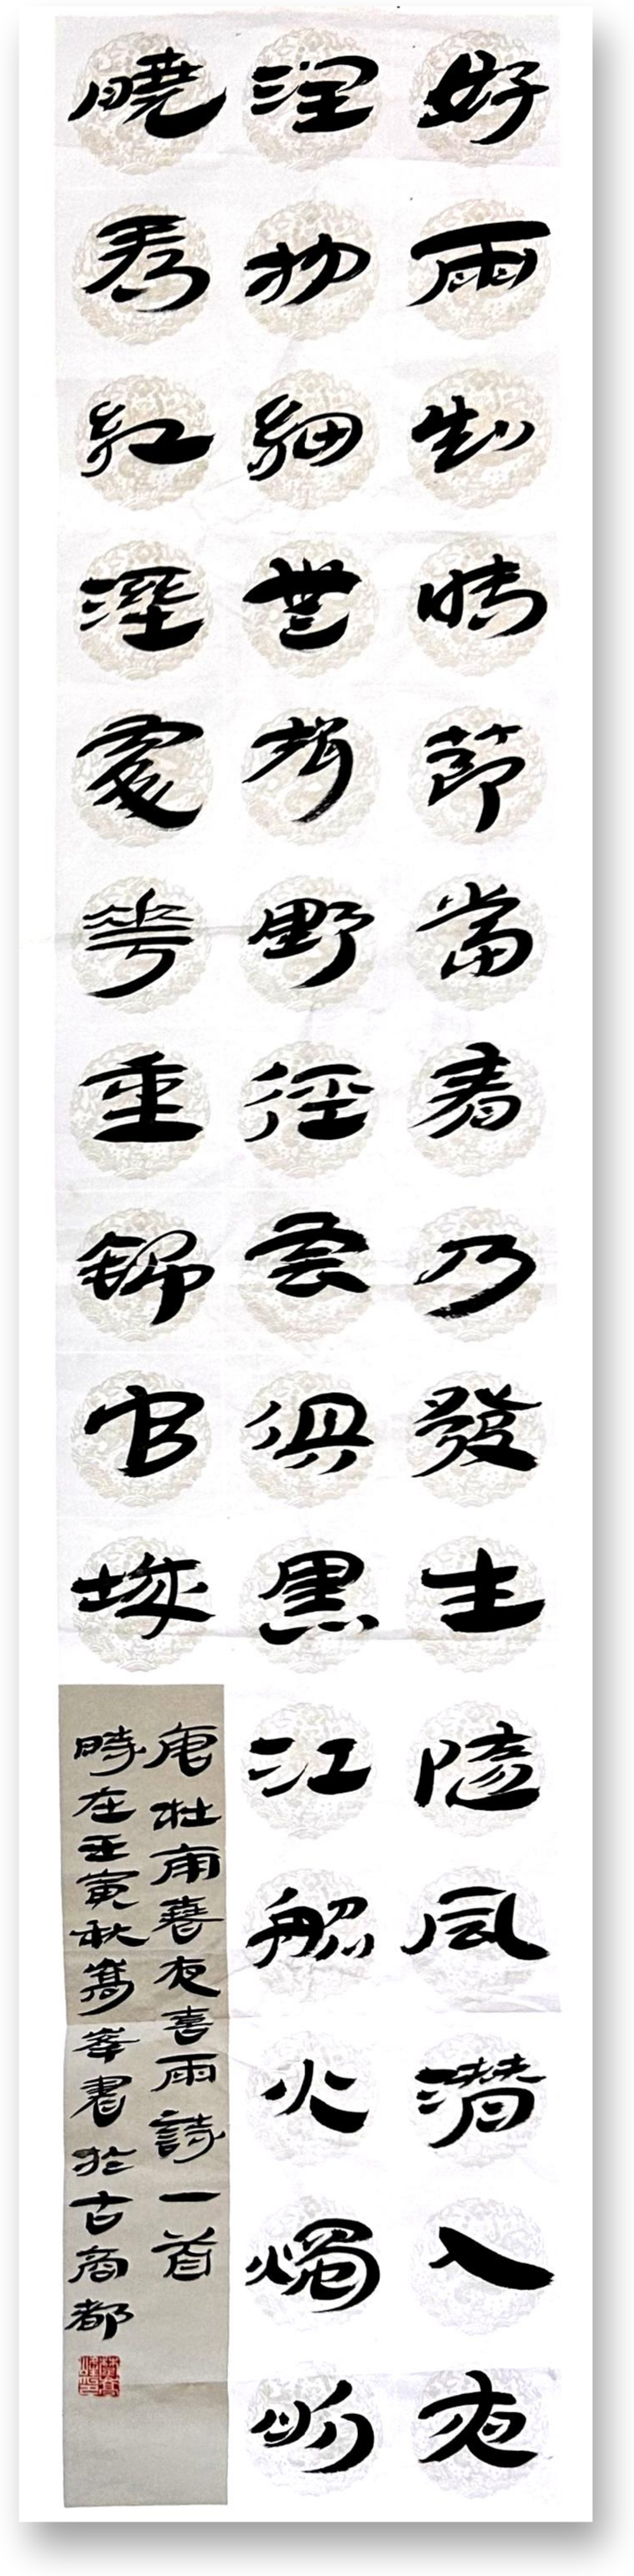 好雨知時節當春乃發生隨風潛入夜
潤物細無聲野徑雲俱黑江船火燭明
曉看紅溼處花重錦官城
唐杜甫春夜喜雨詩一首
時在壬寅秋嵩峯書於古商都